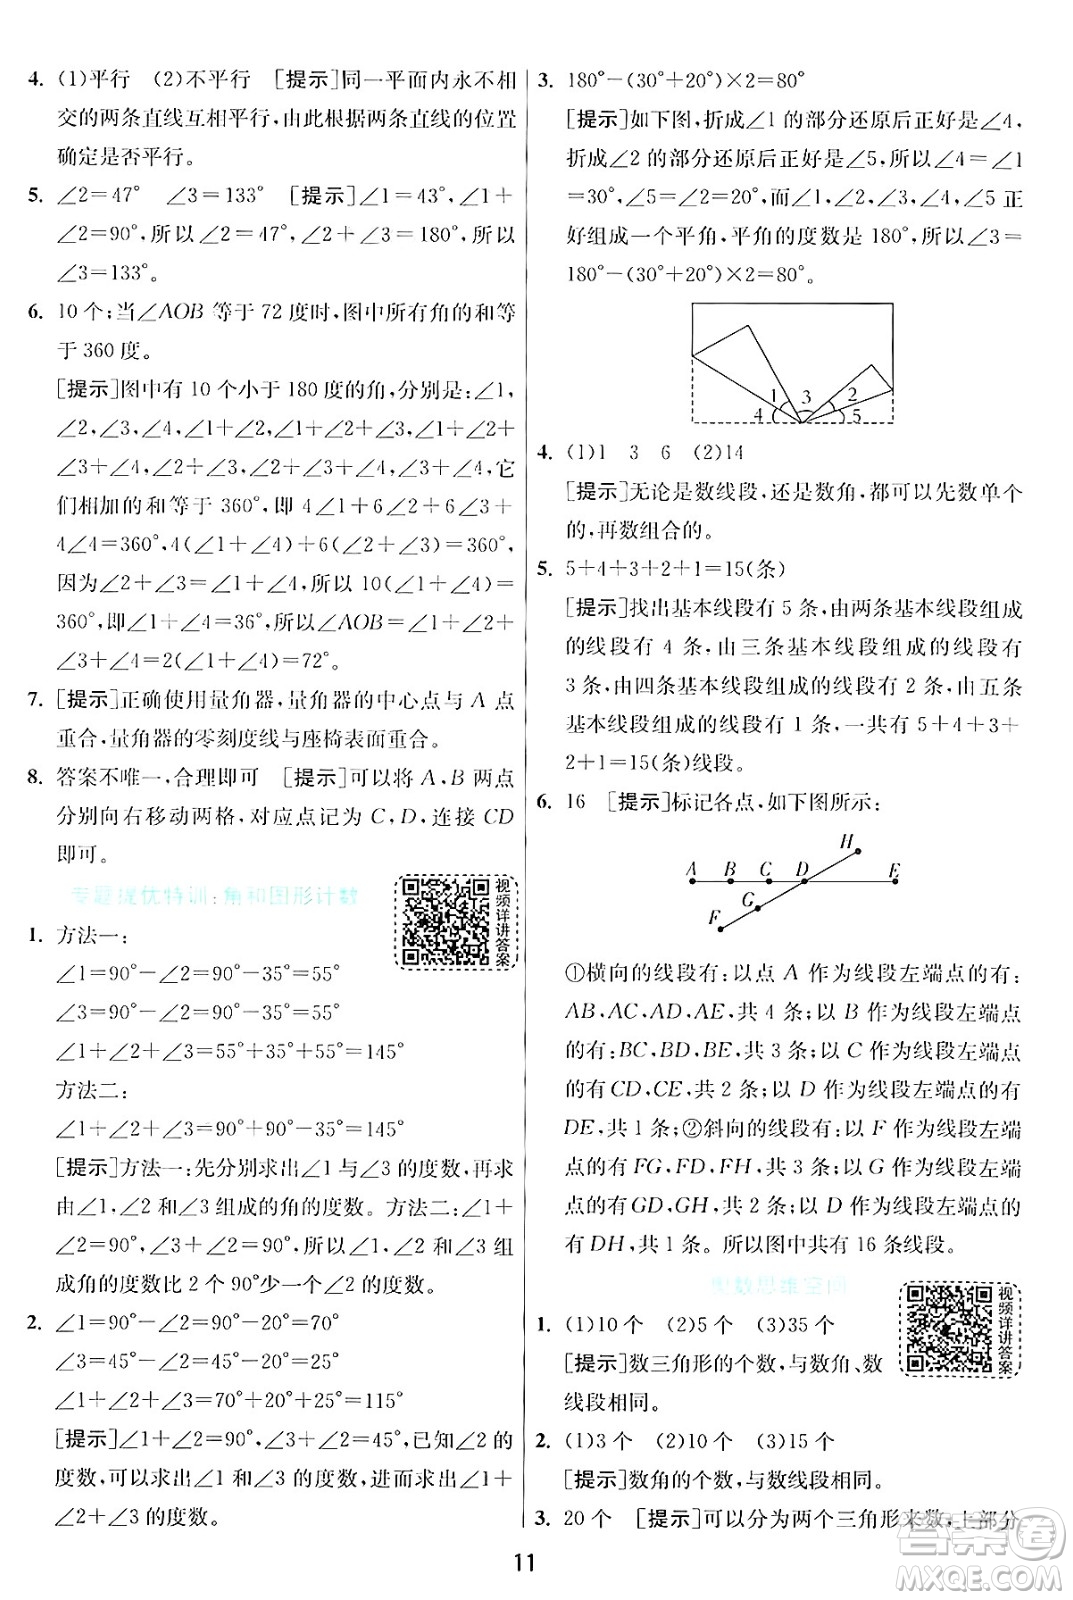 4. (1)平行　(2)不平行　[提示]同一平面内永不相
交的两条直线互相平行,由此根据两条直线的位置
确定是否平行。
5. ∠2=47°　∠3=133°　[提示]∠1=43°,∠1+
∠2=90°,所以∠2=47°,∠2+∠3=180°,所以
∠3=133°。
6. 10个;当∠AOB等于72度时,图中所有角的和等
于360度。
[提示]图中有10个小于180度的角,分别是:∠1,
∠2,∠3,∠4,∠1+∠2,∠1+∠2+∠3,∠1+∠2+
∠3+∠4,∠2+∠3,∠2+∠3+∠4,∠3+∠4,它
们相加的和等于360°,即4∠1+6∠2+6∠3+
4∠4=360°,4(∠1+∠4)+6(∠2+∠3)=360°,
因为∠2+∠3=∠1+∠4,所以10(∠1+∠4)=
360°,即∠1+∠4=36°,所以∠AOB=∠1+∠2+
∠3+∠4=2(∠1+∠4)=72°。
7. [提示]正确使用量角器,量角器的中心点与A点
重合,量角器的零刻度线与座椅表面重合。
8. 答案不唯一,合理即可　[提示]可以将A、B两点
分别向右移动两格,对应点记为C,D,连接CD
即可。
专题提优特训:角和图形计数
视频详讲答案
1. 方法一:
∠1=90°-∠2=90°-35°=55°
∠3=90°-∠2=90°-35°=55°
∠1+∠2+∠3=55°+35°+55°=145°
方法二:
∠1+∠2+∠3=90°+90°-35°=145°
[提示]方法一:先分别求出∠1与∠3的度数,再求
出∠1,∠2和∠3组成的角的度数。方法二:∠1+
∠2=90°,∠3+∠2=90°,∠1,∠2和∠3组
成角的度数比2个90°少一个∠2的度数。
2. ∠1=90°-∠2=90°-20°=70°
∠3=45°-∠2=45°-20°=25°
∠1+∠2+∠3=70°+20°+25°=115°
[提示]∠1+∠2=90°,∠3+∠2=45°,已知∠2的
度数,可以求出∠1与∠3的度数,进而求出∠1+
∠2+∠3的度数。
3. 180°-(30°+20°)×2=80°
[提示]如下图,折成∠1的部分还原后正好是∠4,
折成∠2的部分还原后正好是∠5,所以∠4=∠1
=30°,∠5=∠2=20°,而∠1,∠2,∠3,∠4,∠5正
好组成一个平角,平角的度数是180°,所以∠3=
180°-(30°+20°)×2=80°。
1 3 2
4 5
4. (1)1　3　6　(2)14
[提示]无论是数线段,还是数角,都可以先数单个
的,再数组合的。
5. 5+4+3+2+1=15(条)
[提示]找出基本线段有5条,由两条基本线段组成
的线段有4条,由三条基本线段组成的线段有
3条,由四条基本线段组成的线段有2条,由五条
基本线段组成的线段有1条,一共有5+4+3+
2+1=15(条)线段。
6. 16　[提示]标记各点,如下图所示:
H
A B C D E
G
F
①横向的线段有:以点A作为线段左端点的有:
AB,AC,AD,AE,共4条;以B作为线段左端点
的有:BC,BD,BE,共3条;以C作为线段左端点
的有CD,CE,共2条;以D作为线段左端点的有
DE,共1条;②斜向的线段有:以F作为线段左端
点的有FG,FD,FH,共3条;以G作为线段左端
点的有GD,GH,共2条;以D作为线段左端点的
有DH,共1条。所以图中共有16条线段。
奥数思维空间
视频详讲答案
1. (1)10个　(2)5个　(3)35个
[提示]数三角形的个数,与数角、数
线段相同。
2. (1)3个　(2)10个　(3)15个
[提示]数角的个数,与数线段相同。
3. 20个　[提示]可以分为两个三角形来数,上部分
11
答案圈
MXQE.COM